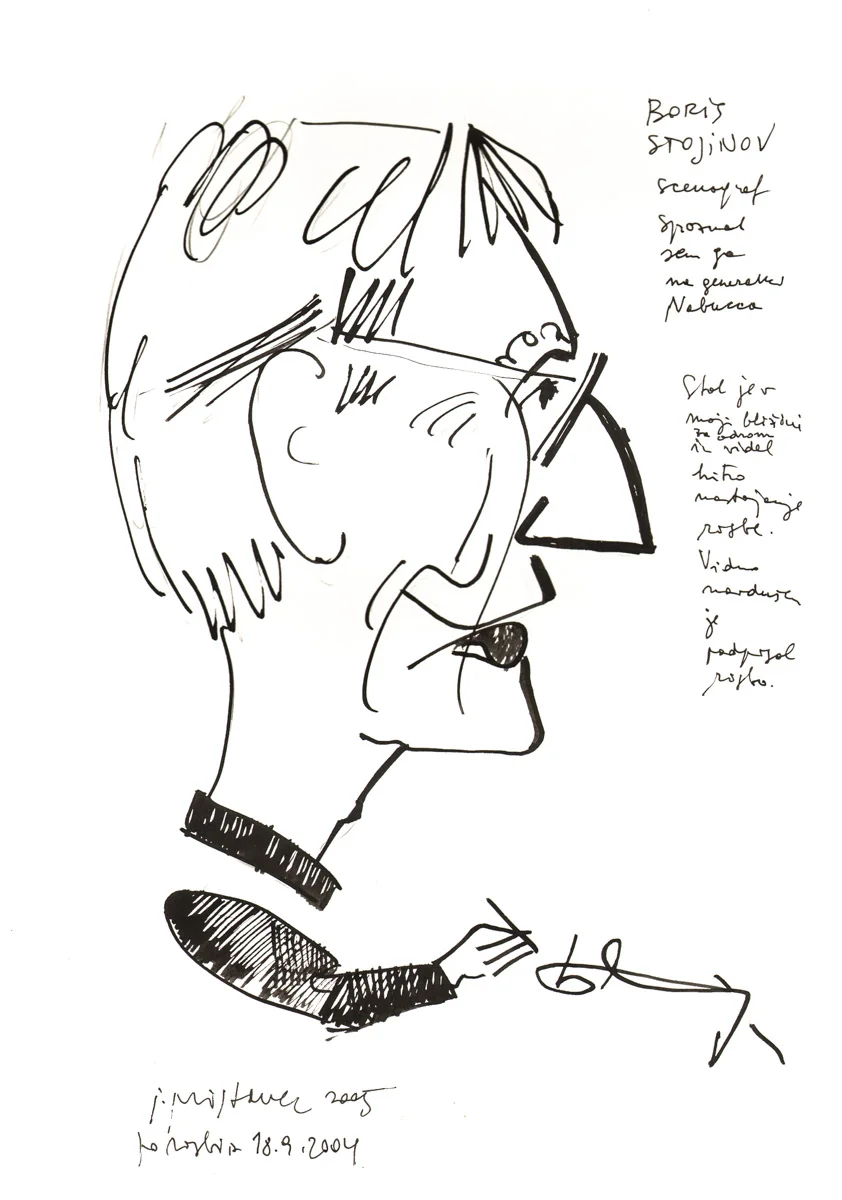 BORIS
STOJINOV
scenograf
spoznal
sem ga
na generalki
Nabucca
Stal je v
moji bližini
za odrom
in videl
hitro
nastajanje
risbe.
Vidno
navdušen
je
podpisal
risbo.
2005
po risbi iz 18.9.2004